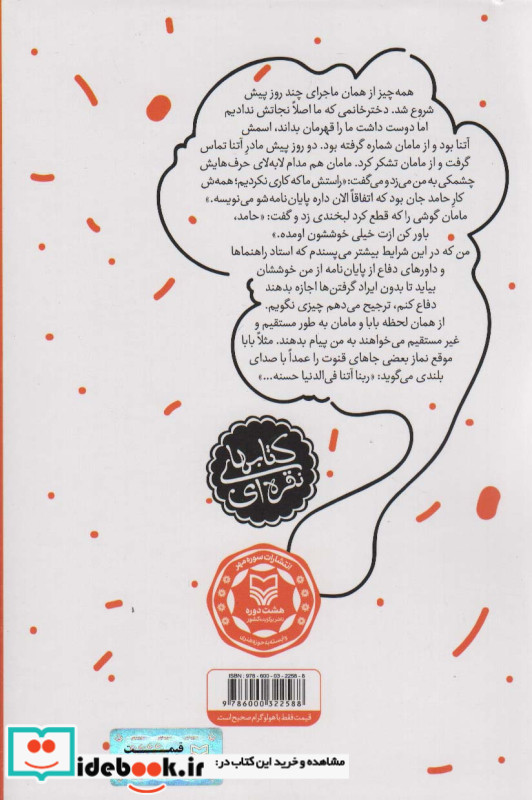 همه‌چیز از همان ماجرای چند روز پیش
شروع شد. دخترخانمی که ما اصلاً نجاتش ندادیم
اما دوست داشت ما را قهرمان بداند، اسمش
آتنا بود و از مامان شماره گرفته بود. دو روز پیش مادرِ آتنا تماس
گرفت و از مامان تشکر کرد. مامان هم مدام لابه‌لای حرف‌هایش
چشمکی به من می‌زد و می‌گفت: «راستش ما که کاری نکردیم؛ همه‌ش
کارِ حامد جان بود که اتفاقاً الان داره پایان‌نامه‌شو می‌نویسه.»
مامان گوشی را که قطع کرد لبخندی زد و گفت: «حامد،
باور کن ازت خیلی خوششون اومده.»
من که در این شرایط بیشتر می‌پسندم که استاد راهنماها
و داورهای دفاع از پایان‌نامه از من خوششان
بیاید تا بدون ایراد گرفتن‌ها اجازه بدهند
دفاع کنم، ترجیح می‌دهم چیزی نگویم.
از همان لحظه بابا و مامان به طور مستقیم و
غیر مستقیم می‌خواهند به من پیام بدهند. مثلاً بابا
موقع نماز بعضی جاهای قنوت را عمداً با صدای
بلندی می‌گوید: «ربنا آتنا فی‌الدنیا حسنه...»
کتابهای
نقره‌ای
انتشارات سوره مهر
هشت دوره
ناشر برگزیده کشور
وابسته به حوزه هنری
ISBN: 978-600-03-2258-8
9 786000 322588
قیمت فقط با هولوگرام صحیح است
قیمت
مشاهده و خرید این کتاب در:
idebook.ir